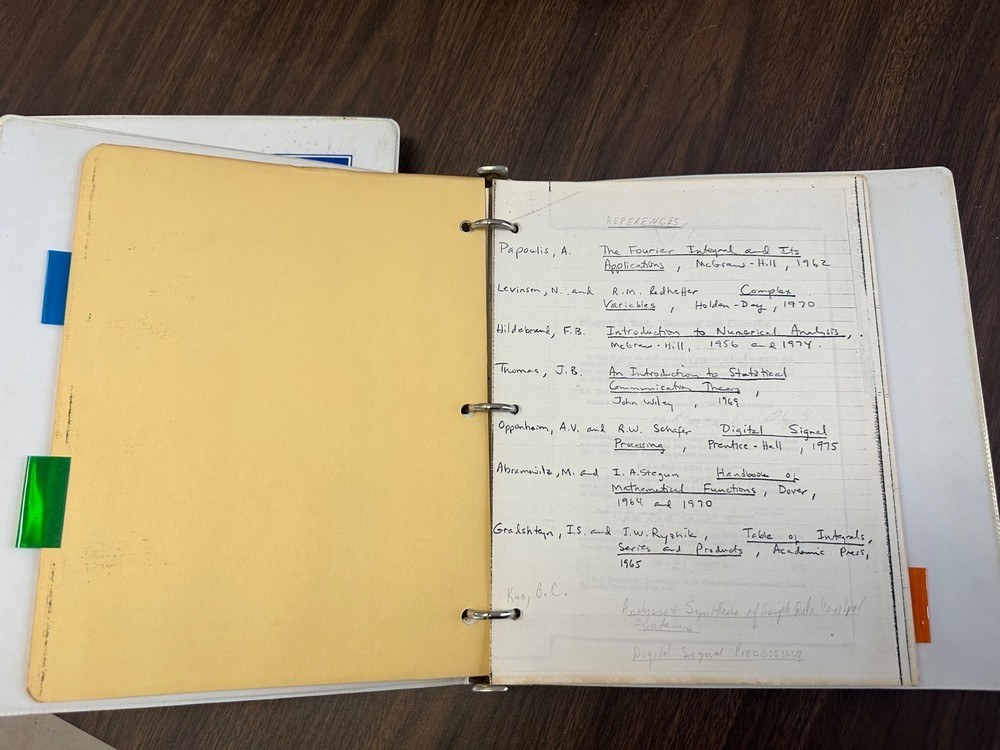 REFERENCES
Papoulis, A. The Fourier Integral and Its
Applications, McGraw-Hill, 1962
Levinson, N. and R.M. Redheffer Complex
Variables, Holden-Day, 1970
Hildebrand, F.B. Introduction to Numerical Analysis,
McGraw-Hill, 1956 and 1974.
Thomas, J.B. An Introduction to Statistical
Communication Theory,
John Wiley, 1969
Oppenheim, A.V. and R.W. Schafer Digital Signal
Processing, Prentice-Hall, 1975
Abramowitz, M. and I.A. Stegun Handbook of
Mathematical Functions, Dover,
1964 and 1970
Gradshteyn, I.S. and I.W. Ryzhik, Table of Integrals,
Series and Products, Academic Press,
1965
Kuo, B.C.
Analysis & Synthesis of Sample Data Control
Systems
Digital Signal Processing